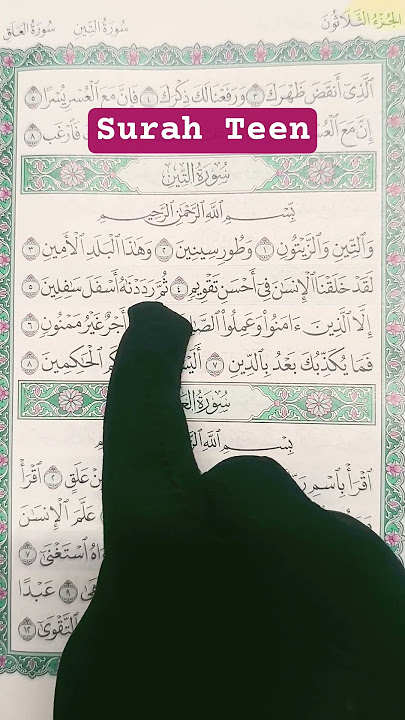 الجُزءُ الثَّلَاثُونَ سُورَةُ التِّين سُورَةُ العَلَق
ٱلَّذِىٓ أَنقَضَ ظَهْرَكَ ٣ وَرَفَعْنَا لَكَ ذِكْرَكَ ٤ فَإِنَّ مَعَ ٱلْعُسْرِ يُسْرًا ٥
إِنَّ مَعَ ٱلْعُسْرِ فَٱرْغَب ٨
Surah Teen
سُورَةُ التِّينِ
بِسْمِ ٱللَّهِ ٱلرَّحْمَٰنِ ٱلرَّحِيمِ
وَٱلتِّينِ وَٱلزَّيْتُونِ ١ وَطُورِ سِينِينَ ٢ وَهَٰذَا ٱلْبَلَدِ ٱلْأَمِينِ ٣
لَقَدْ خَلَقْنَا ٱلْإِنسَٰنَ فِىٓ أَحْسَنِ تَقْوِيمٍ ٤ ثُمَّ رَدَدْنَٰهُ أَسْفَلَ سَٰفِلِينَ ٥
إِلَّا ٱلَّذِينَ ءَامَنُوا۟ وَعَمِلُوا۟ أَجْرٌ غَيْرُ مَمْنُونٍ ٦
فَمَا يُكَذِّبُكَ بَعْدُ بِٱلدِّينِ ٧ ٱلْحَٰكِمِينَ ٨
سُورَةُ
بِسْمِ ٱللَّهِ
ٱقْرَأْ بِٱسْمِ عَلَقٍ ٢ ٱقْرَأْ
عَلَّمَ ٱلْإِنسَٰنَ
ٱسْتَغْنَىٰٓ ٧
٩ عَبْدًا
بِٱلتَّقْوَىٰٓ ١٢